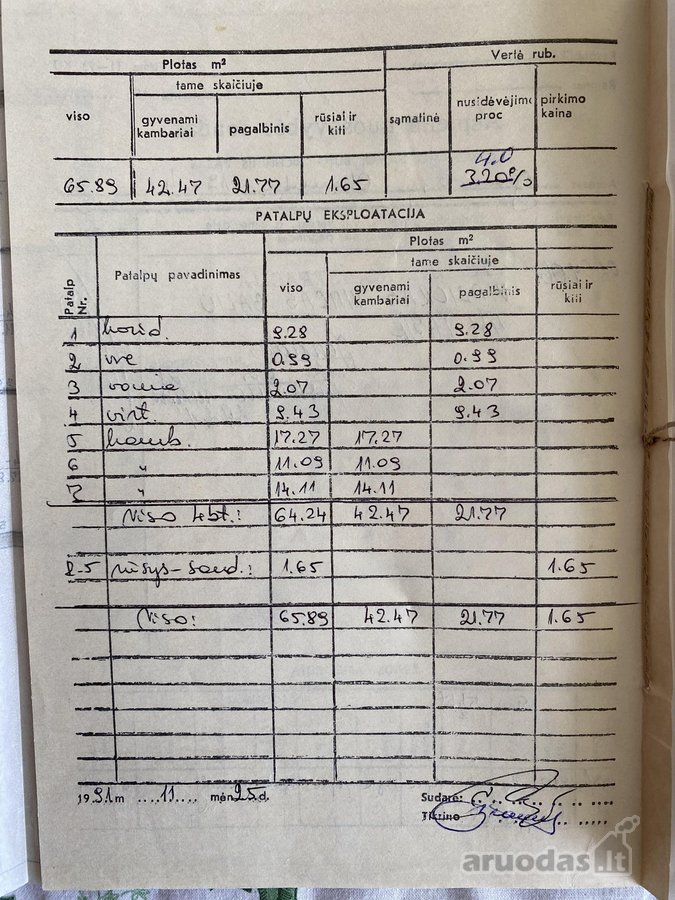 Plotas m² Vertė rub.
tame skaičiuje
viso gyvenami kambariai pagalbinis rūsiai ir kiti sąmatinė nusidėvėjimo proc pirkimo kaina
4.0
65.89 42.47 21.77 1.65 3.20%
PATALPŲ EKSPLOATACIJA
Plotas m²
tame skaičiuje
Patalp Nr. Patalpų pavadinimas viso gyvenami kambariai pagalbinis rūsiai ir kiti
1 korid. 9.28 9.28
2 wc 0.99 0.99
3 vonia 2.07 2.07
4 virt. 9.43 9.43
5 kamb. 17.27 17.27
6 " 11.09 11.09
7 " 14.11 14.11
Viso 4bt.: 64.24 42.47 21.77
R-5 rūsys-sand.: 1.65 1.65
Viso: 65.89 42.47 21.77 1.65
1991 m ....11.... mėn 25 d. Sudarė:
Tikrino
aruodas.lt